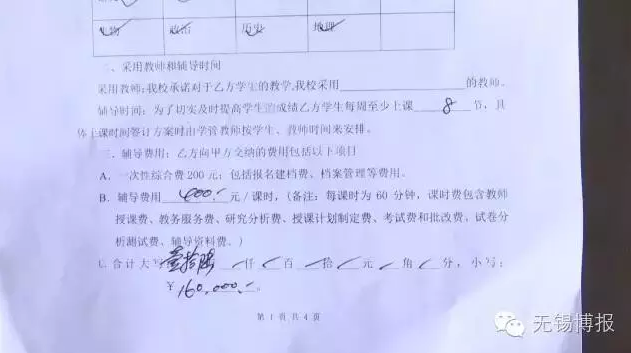 生物 政治 历史 地理
二、采用教师和辅导时间
采用教师:我校承诺对于乙方学生的教学,我校采用 的教师。
辅导时间：为了切实及时提高学生的成绩乙方学生每周至少上课 8 节，具
体上课时间签订方案时由学管教师按学生、教师时间来安排。
三、辅导费用：乙方向甲方交纳的费用包括以下项目
A、一次性综合费 200 元：包括报名建档费、档案管理等费用。
B、辅导费用 400.- 元／课时，(备注：每课时为 60 分钟，课时费包含教师
授课费、教务服务费、研究分析费、授课计划制定费、考试费和批改费，试卷分
析测试费、辅导资料费。)
C、合计大写 壹拾 仟 百 拾 元 角 分，小写：
￥160,000.-。
第 1 页 共 4 页
无锡博报